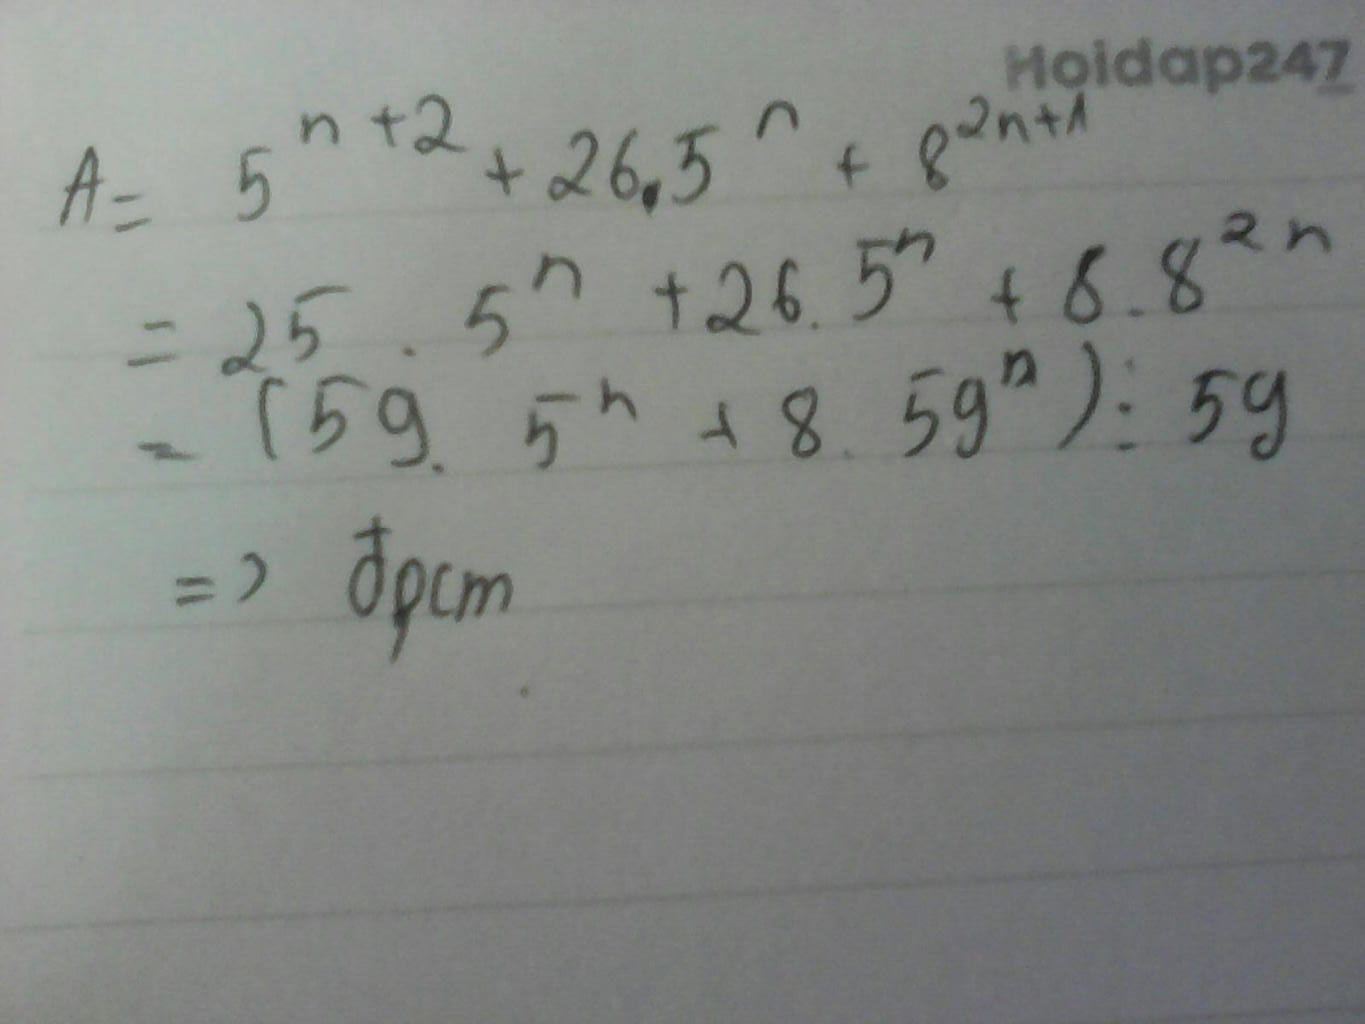 Hoidap247
A = 5^{n+2} + 26.5^n + 8^{2n+1}
= 25 . 5^n + 26. 5^n + 8. 8^{2n}
= (59. 5^n + 8. 59^n) ⋮ 59
=> đpcm